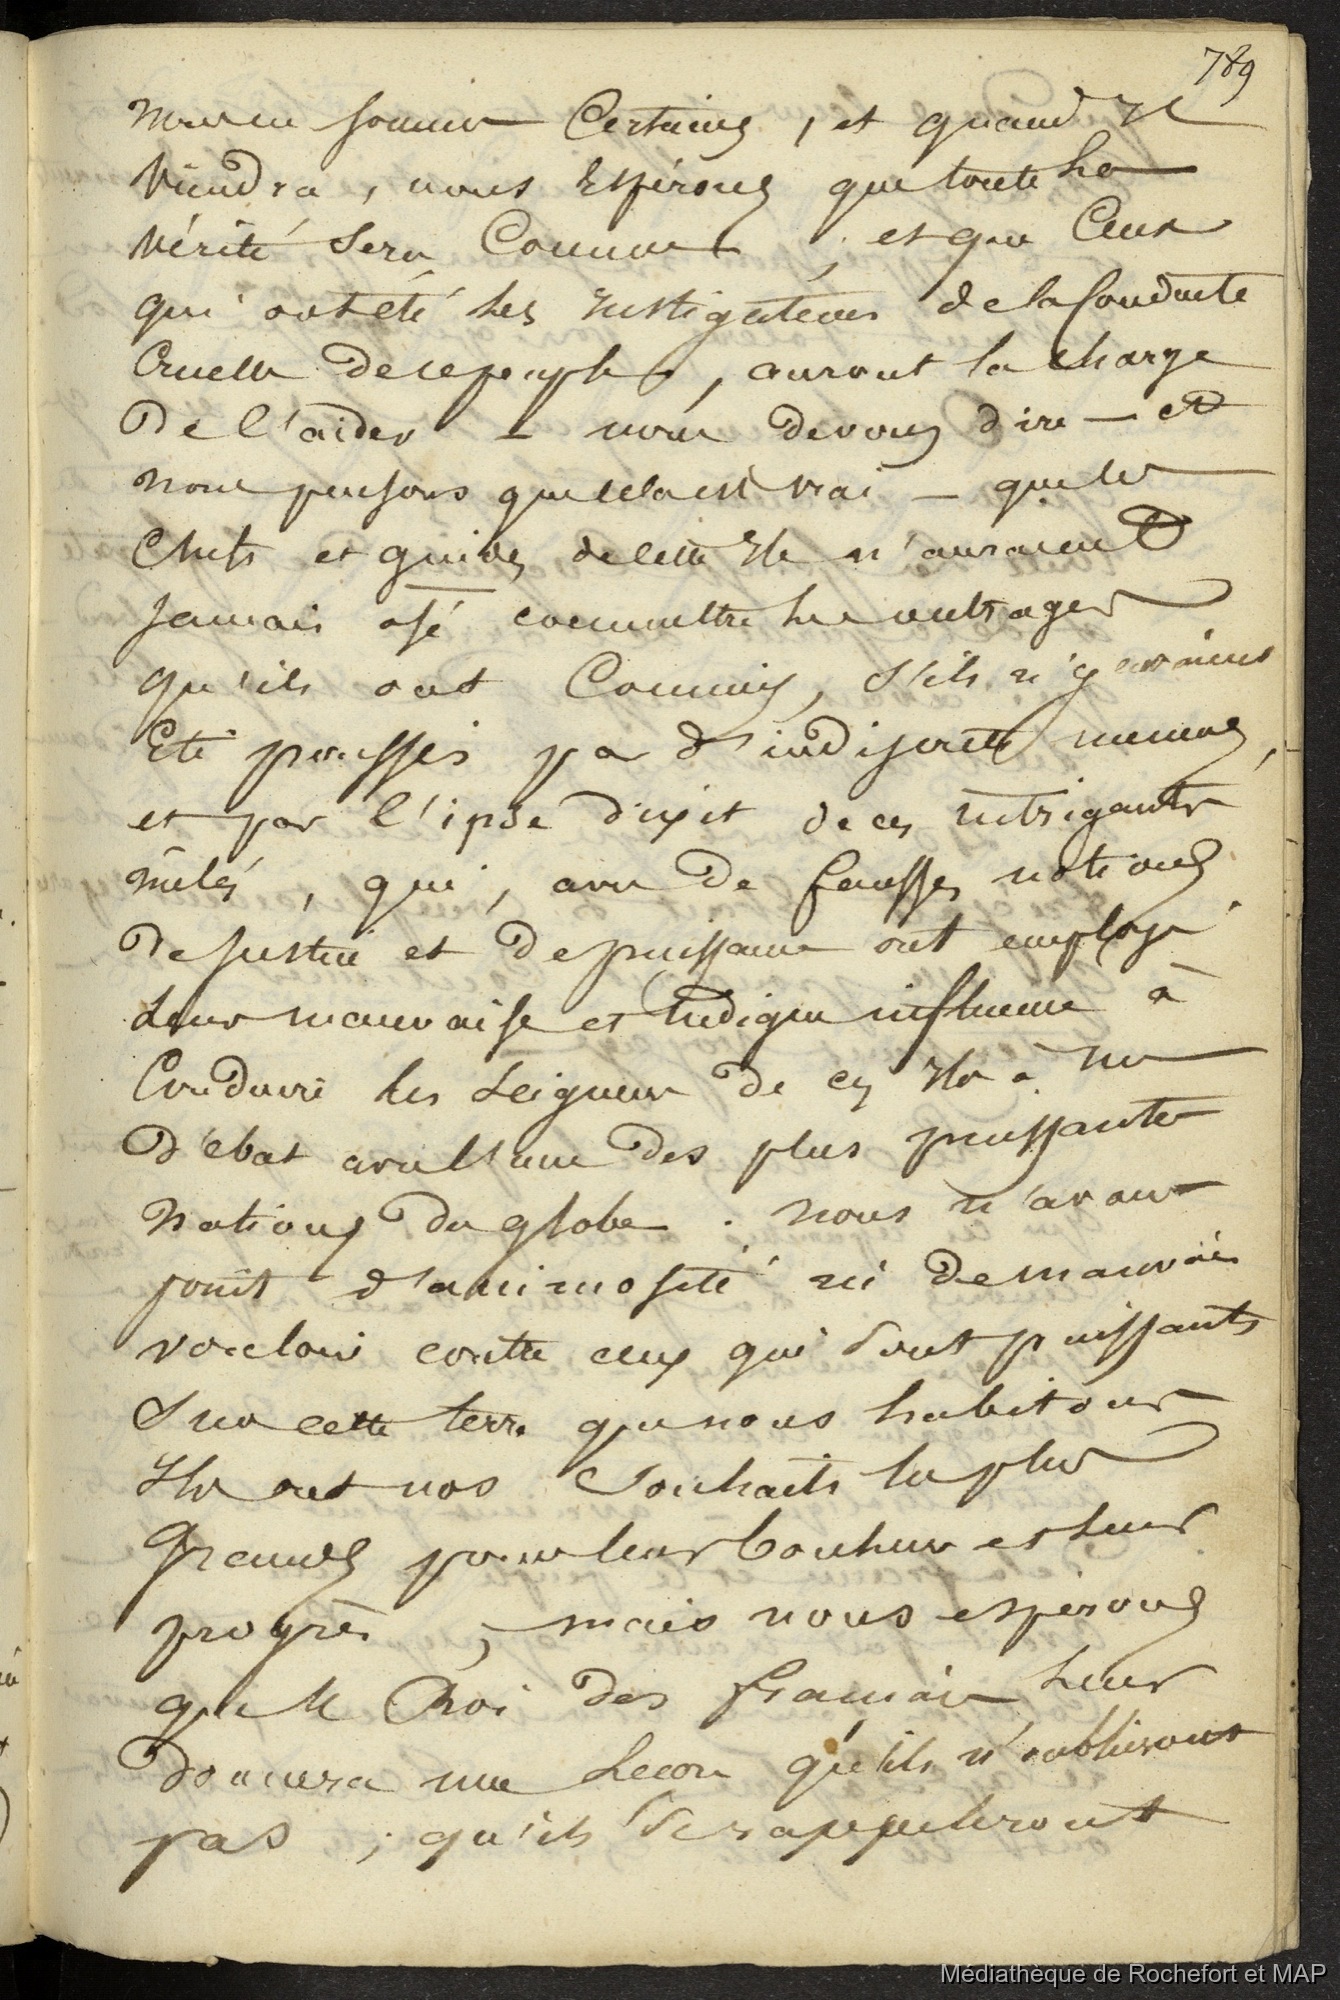 789
nous en sommes Certains, et quand Il
Viendra, nous Espérons que toute la
Vérité sera Connue, et que Ceux
qui ont été les Instigateurs de la Conduite
Cruelle de ce peuple, auront la charge
De l'aider — nous devons dire — et
nous pensons que cela est vrai — que les
Chefs et guides de cette Ile n'auraient
Jamais osé commettre les outrages
qu'ils ont Commis, s'ils n'y avaient
Eté poussés par d'indiscrets menées,
et par l'ipse dixit de ces intrigants
mêlés, qui, avec De fausses notions
De Justice et De puissance ont employé
Leur mauvaise et Indigne influence à
Conduire les Seigneurs De ces Iles à un
Débat avec l'une Des plus puissantes
Nations Du globe. Nous n'avons
point d'animosité ni De mauvais
vouloir contre ceux qui sont puissants
Sur cette terre que nous habitons
Ils ont nos Souhaits les plus
Grands pour leur bonheur et leur
progrès ; mais nous espérons
que le Roi Des Français leur
Donnera une Lecon qu'ils n'oublieront
pas ; qu'ils Se rappelleront
Médiathèque de Rochefort et MAP